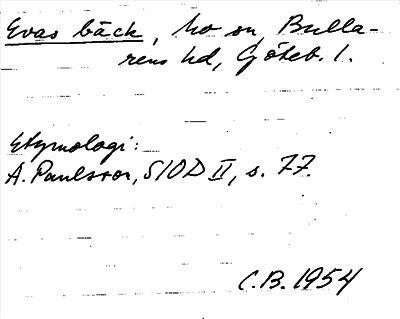 Evas bäck, Mo sn, Bulla-
rens hd, Göteb. l.
Etymologi:
A. Paulsson, SIOD II, s. 77.
C.B. 1954